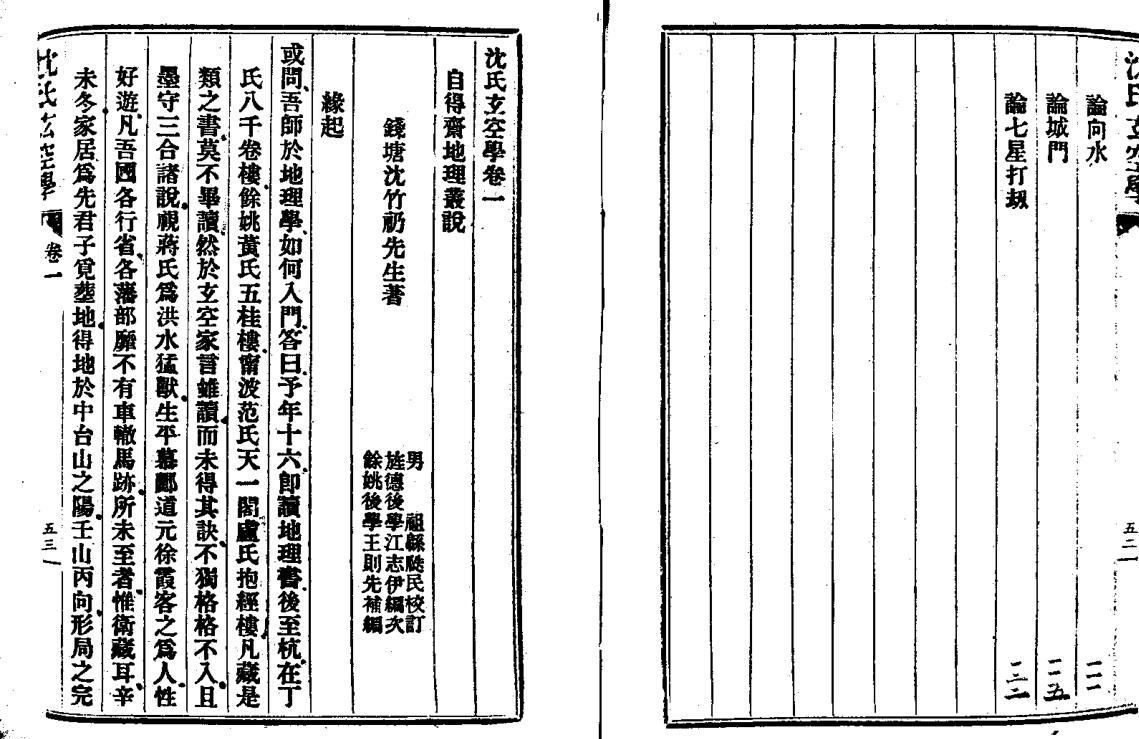 沈氏玄空學
論向水 二一一
論城門 二一五
論七星打刼 二二一
五二
沈氏玄空學卷一
自得齋地理叢說
錢塘沈竹礽先生著
男 祖緜瓞民校訂
旌德後學江志伊編次
餘姚後學王則先補編
緣起
或問、吾師於地理學、如何入門、答曰、予年十六、卽讀地理書、後至杭、在丁
氏八千卷樓、餘姚黃氏五桂樓、甯波范氏天一閣、盧氏抱經樓、凡藏是
類之書、莫不畢讀、然於玄空家言、雖讀而未得其訣、不獨格格不入、且
墨守三合諸說、視蔣氏爲洪水猛獸、生平慕酈道元徐霞客之爲人、性
好遊、凡吾國各行省、各藩部、靡不有車轍馬跡、所未至者、惟衛藏耳、辛
未冬、家居爲先君子覓塟地、得地於中台山之陽、壬山丙向、形局之完
沈氏玄空學 卷一
五三